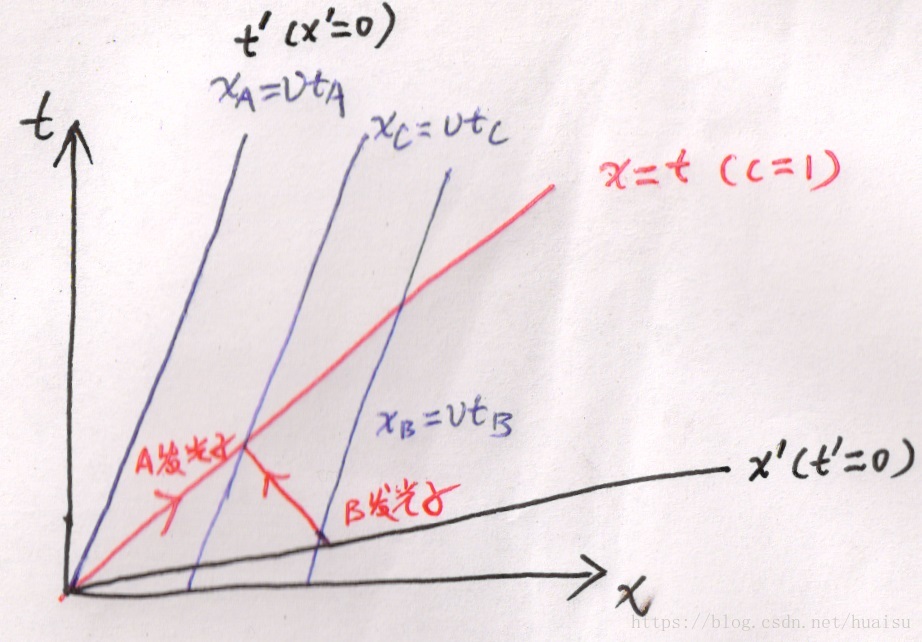 t' (x'=0)
x_A=υt_A
t
x_C=υt_C
x=t (c=1)
x_B=υt_B
A发光子
x'(t'=0)
B发光子
x
https://blog.csdn.net/huaisu